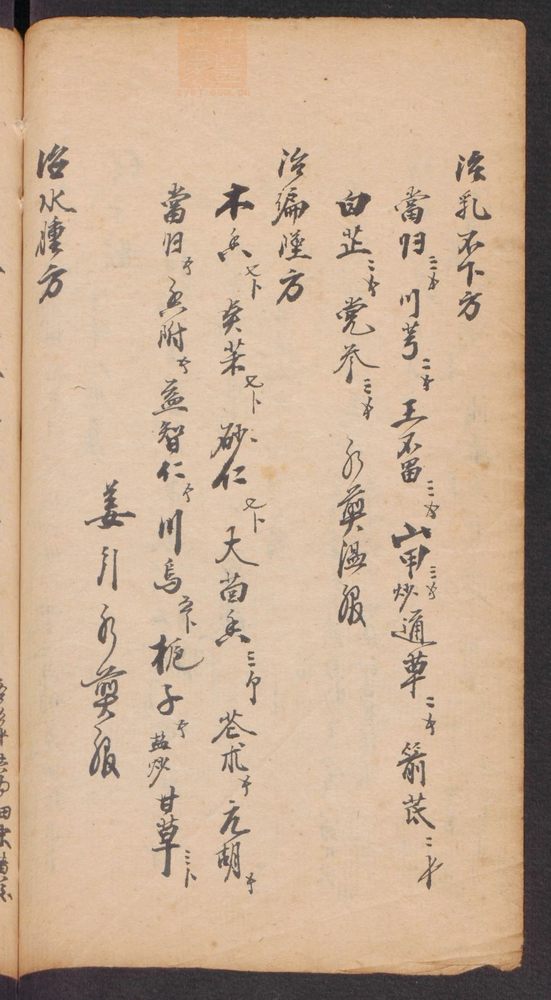 治乳不下方
當归三钱 川芎二钱 王不畱三钱 山甲炒三钱 通草二钱 箭芪二钱
白芷二钱 党参三钱 水煎温服
治编墜方
木香七卜 吴茱七卜 砂仁七卜 大茴香三钱 苍术钱 元胡钱
當归钱 香附钱 益智仁钱 川烏五卜 栀子钱盐炒 甘草三卜
姜引水煎服
治水腫方